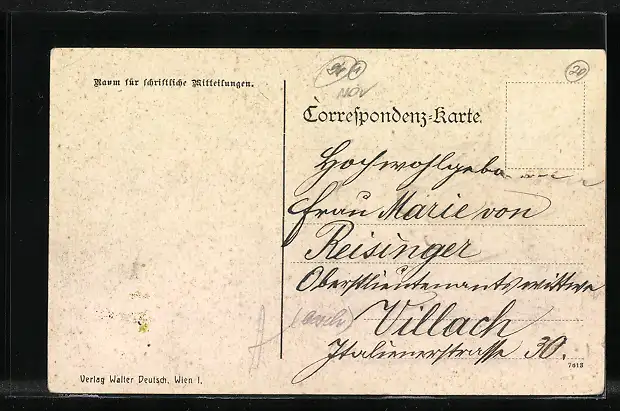 Raum für schriftliche Mitteilungen.
NOV
20
Correspondenz-Karte.
Hochwohlgeboren
Frau Marie von
Reisinger
Oberstlieutenantswittwe
Villach
Italienerstrasse 30.
Verlag Walter Deutsch, Wien I.
7613